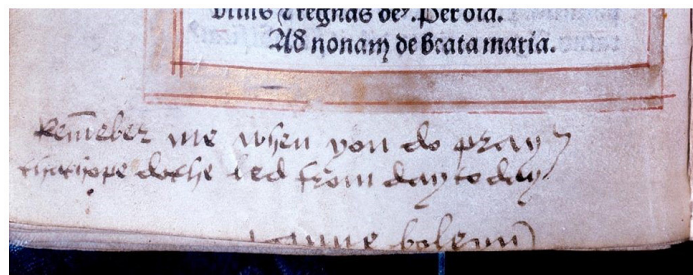 vivis & regnas de9. Per oia.
Ad nonam de beata maria.
Remēber me when you do pray
that hope dothe led from day to day
anne boleyn